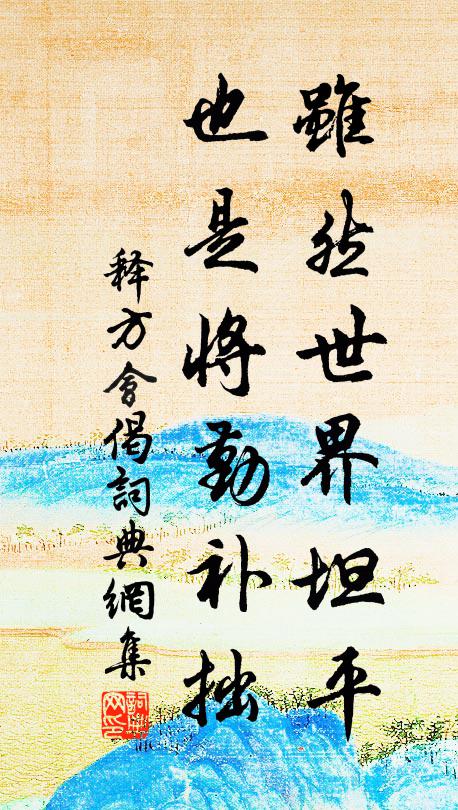 雖然世界坦平
也是將勤补拙
释方會偈詞典網集